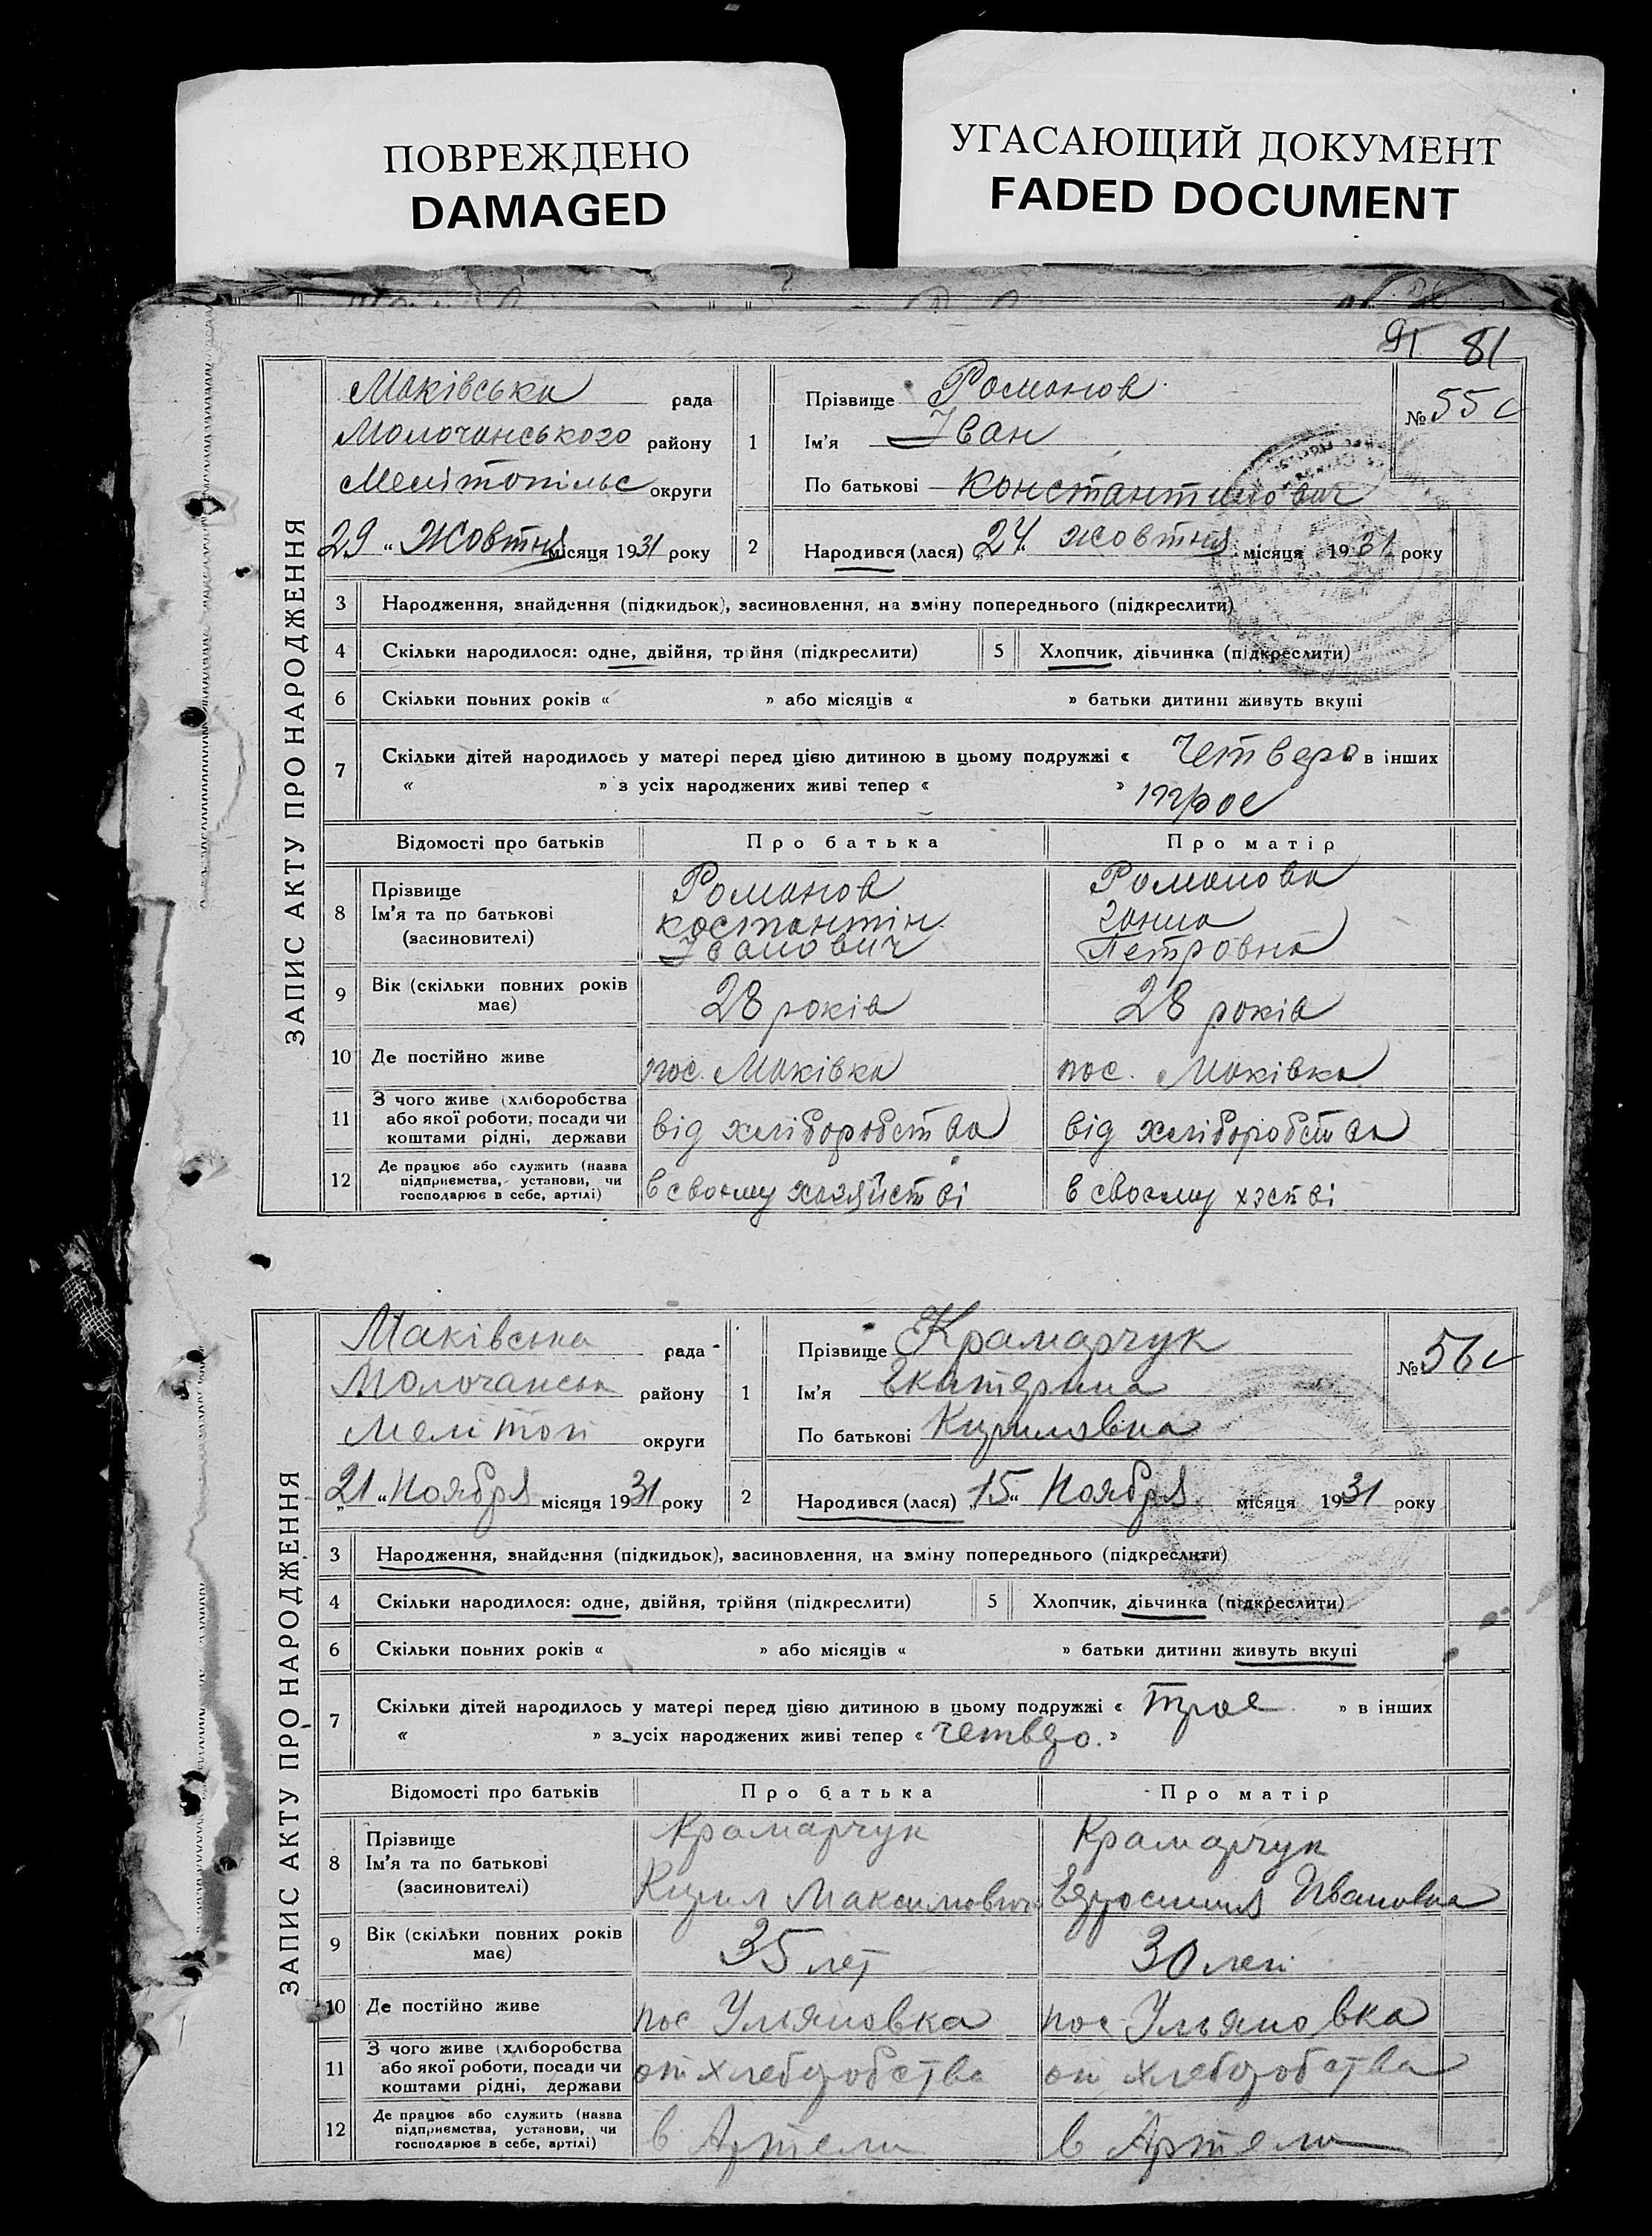 ПОВРЕЖДЕНО
DAMAGED
УГАСАЮЩИЙ ДОКУМЕНТ
FADED DOCUMENT
91 81
ЗАПИС АКТУ ПРО НАРОДЖЕННЯ
Маківська рада
Молочанського району
Мелітопільс округи
29 „ Жовтня місяця 1931 року
1 Прізвище Романов
Ім'я Іван
По батькові Константинович
№ 55
2 Народився (лася) „24 „ жовтня місяця 1931 року
3 Народження, знайдення (підкидьок), засиновлення, на зміну попереднього (підкреслити)
4 Скільки народилося: одне, двійня, трійня (підкреслити) 5 Хлопчик, дівчинка (підкреслити)
6 Скільки повних років « » або місяців « » батьки дитини живуть вкупі
7 Скільки дітей народилось у матері перед цією дитиною в цьому подружжі « Четверо в інших
« » з усіх народжених живі тепер « » трое
Відомості про батьків Про батька Про матір
8 Прізвище Романов Романова
Ім'я та по батькові костантін ганна
(засновителі) Іванович Петровна
9 Вік (скільки повних років має) 28 років 28 років
10 Де постійно живе пос. Маківка пос. Маківка
11 З чого живе (хліборобства
або якої роботи, посади чи від хліборобства від хліборобства
коштами рідні, держави
12 Де працює або служить (назва
підприємства, установи, чи в своєму хазяйстві в своєму хзстві
господарює в себе, артілі)
ЗАПИС АКТУ ПРО НАРОДЖЕННЯ
Маківська рада
Молочанськ району
Меліtоп округи
„21 „ Ноября місяця 1931 року
1 Прізвище Крамарчук
Ім'я Екатерина
По батькові Кириловна
№ 56
2 Народився (лася) „15 „ Ноября місяця 1931 року
3 Народження, знайдення (підкидьок), засиновлення, на зміну попереднього (підкреслити)
4 Скільки народилося: одне, двійня, трійня (підкреслити) 5 Хлопчик, дівчинка (підкреслити)
6 Скільки повних років « » або місяців « » батьки дитини живуть вкупі
7 Скільки дітей народилось у матері перед цією дитиною в цьому подружжі « трое » в інших
« » з усіх народжених живі тепер « четверо. »
Відомості про батьків Про батька Про матір
8 Прізвище Крамарчук Крамарчук
Ім'я та по батькові
(засиновителі) Кирил Максимович Ефросиния Ивановна
9 Вік (скільки повних років має) 35 лет 30 лет
10 Де постійно живе пос Ульяновка пос Ульяновка
11 З чого живе (хліборобства
або якої роботи, посади чи от хлеборобства от хлеборобства
коштами рідні, держави
12 Де працює або служить (назва
підприємства, установи, чи в Артели в Артели
господарює в себе, артілі)